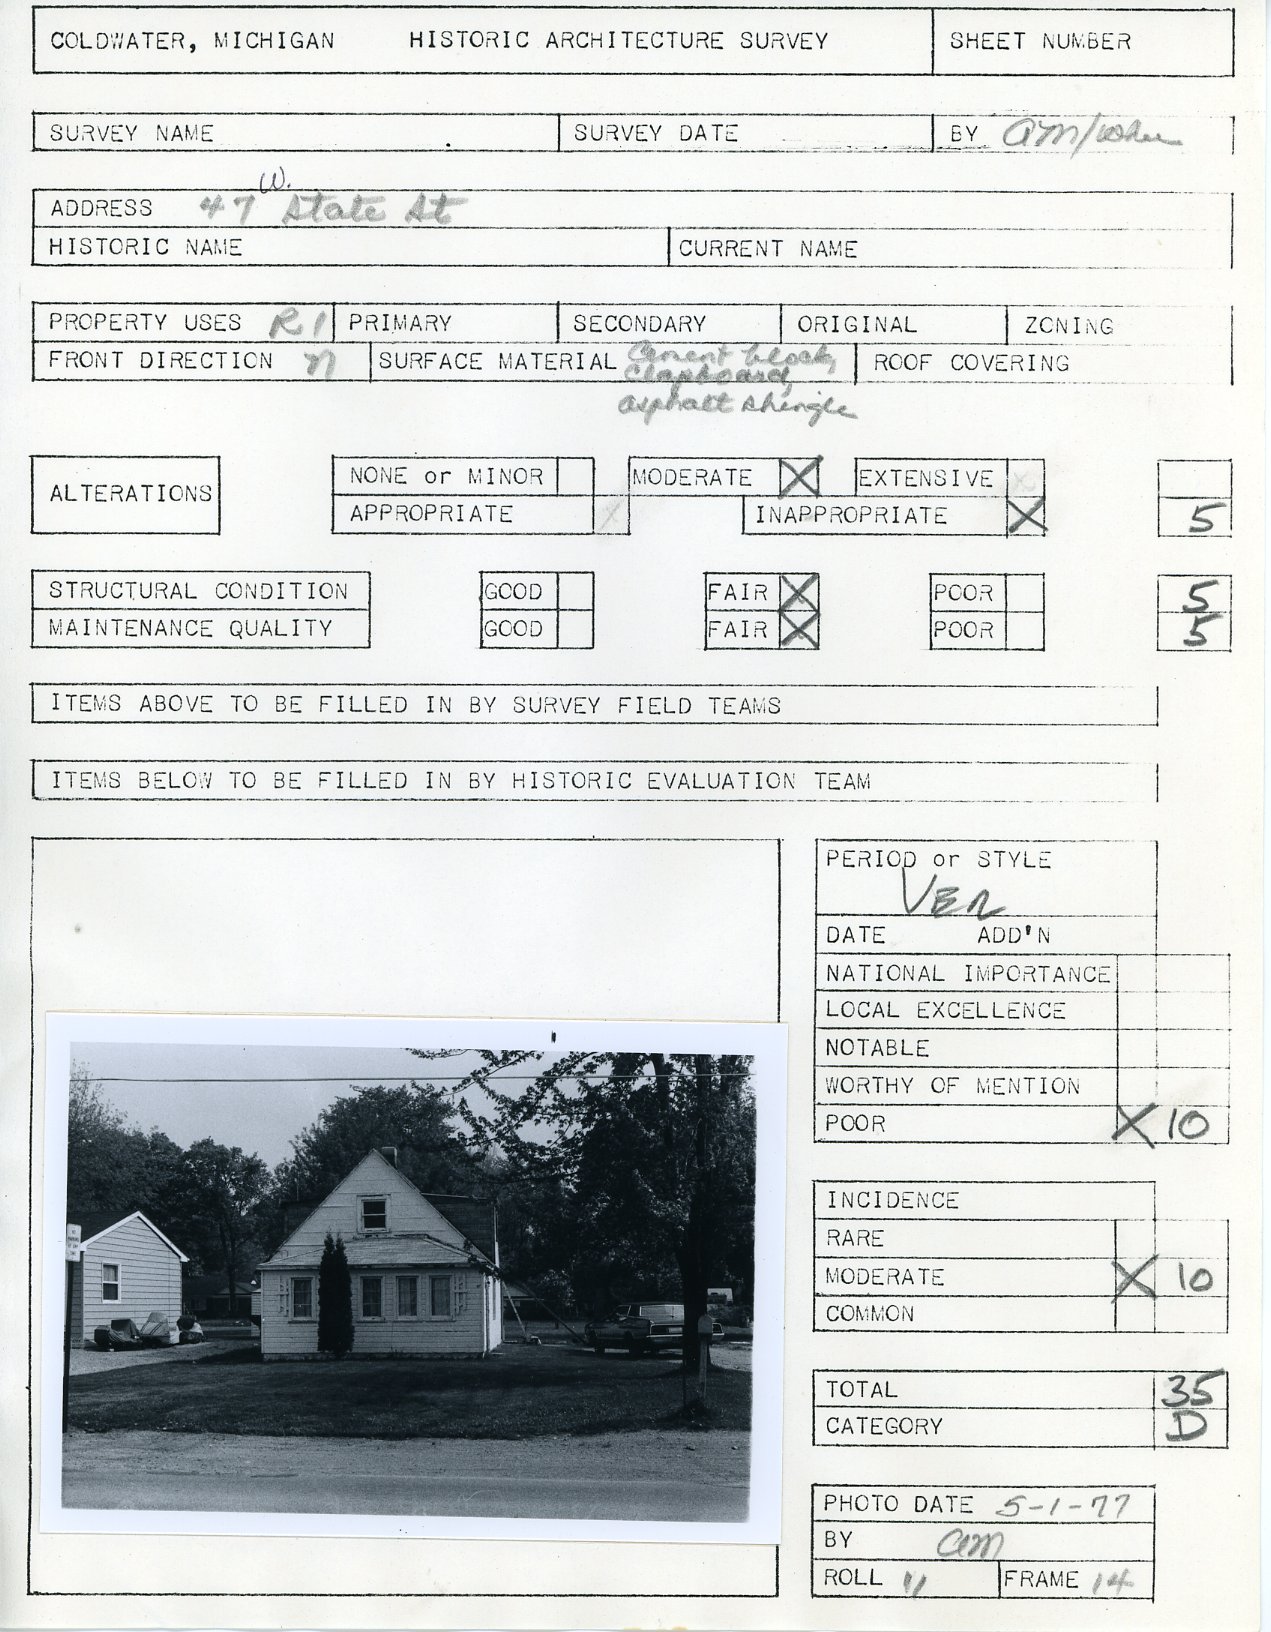 COLDWATER, MICHIGAN HISTORIC ARCHITECTURE SURVEY SHEET NUMBER
SURVEY NAME SURVEY DATE BY am/
ADDRESS 47 W. State St
HISTORIC NAME CURRENT NAME
PROPERTY USES R1 PRIMARY SECONDARY ORIGINAL ZONING
FRONT DIRECTION N SURFACE MATERIAL Cement block, ROOF COVERING
Clapboard,
asphalt shingle
ALTERATIONS NONE or MINOR MODERATE X EXTENSIVE X
APPROPRIATE X INAPPROPRIATE X 5
STRUCTURAL CONDITION GOOD FAIR X POOR 5
MAINTENANCE QUALITY GOOD FAIR X POOR 5
ITEMS ABOVE TO BE FILLED IN BY SURVEY FIELD TEAMS
ITEMS BELOW TO BE FILLED IN BY HISTORIC EVALUATION TEAM
PERIOD or STYLE
VER
DATE ADD'N
NATIONAL IMPORTANCE
LOCAL EXCELLENCE
NOTABLE
WORTHY OF MENTION
POOR X 10
INCIDENCE
RARE
MODERATE X 10
COMMON
TOTAL 35
CATEGORY D
PHOTO DATE 5-1-77
BY am
ROLL 11 FRAME 14